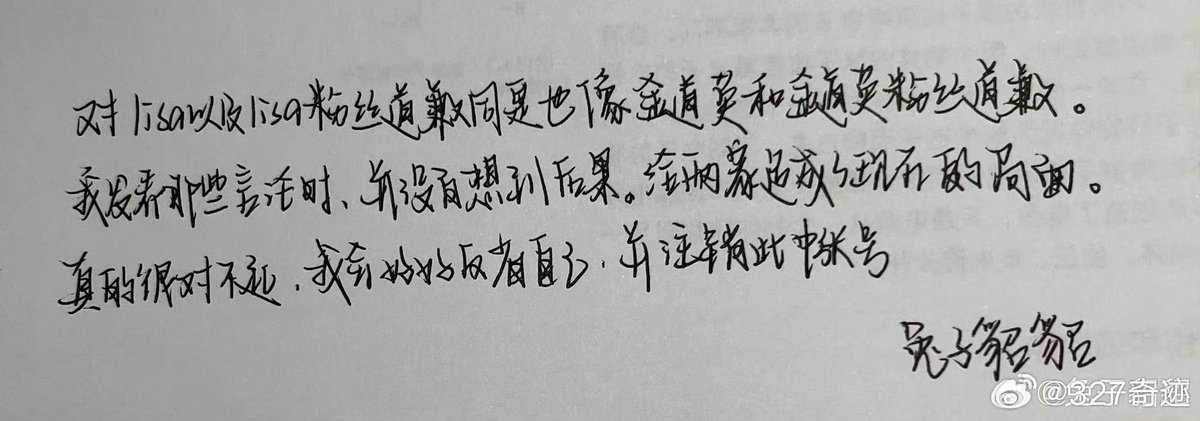 对lisa以及lisa粉丝道歉同是也像金道英和金道英粉丝道歉。
我发表那些言话时、并没有想到后果。给两家造成任现在的局面。
真的很对不起，我会好好反省自己，并注销此账号
兔子貂貂
@327奇迹